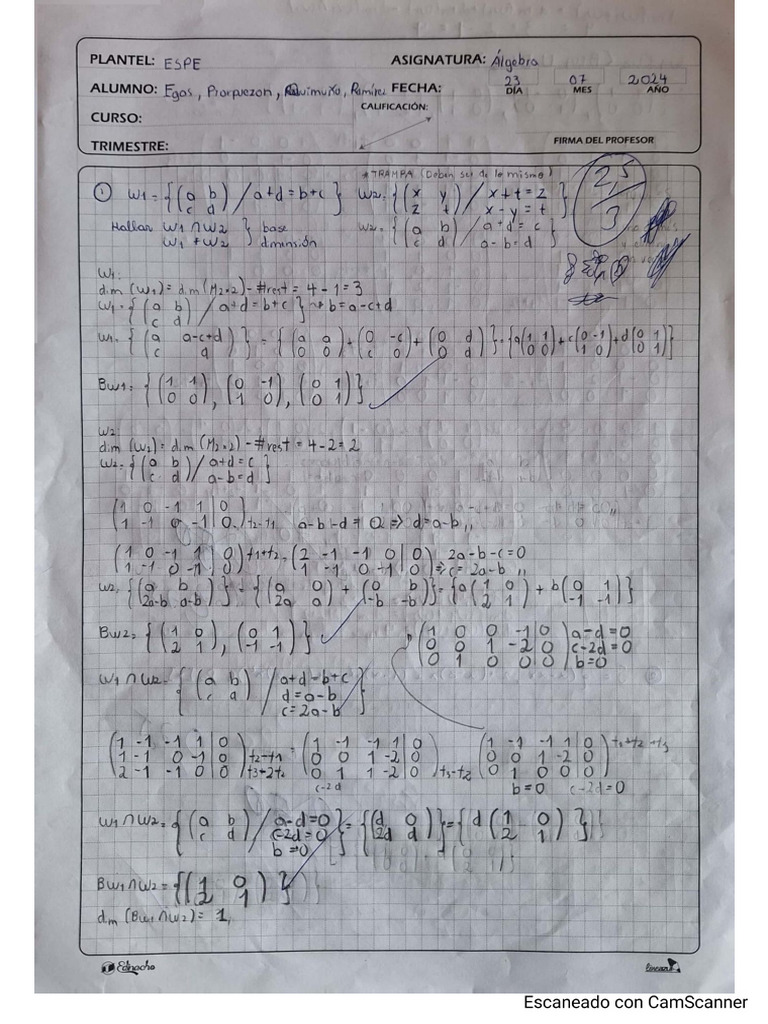 PLANTEL: ESPE ASIGNATURA: Álgebra
ALUMNO: Egas, , , Ramírez FECHA: 23 DÍA 07 MES 2024 AÑO
CURSO: CALIFICACIÓN:
TRIMESTRE: FIRMA DEL PROFESOR
*TRAMPA (Deben ser de lo mismo)
① W1 = {(a b / c d) / a+d = b+c} W2 = {(x y / z t) / x+t = z / x-y = t}
2,5 / 3
Hallar W1 ∩ W2 } base W2 = {(a b / c d) / a+d = c / a-b = d}
W1 + W2 } dimensión
W1:
dim (W1) = dim (M2×2) - #rest = 4 - 1 = 3
W1 = {(a b / c d) / a+d = b+c} → b = a-c+d
W1 = {(a a-c+d / c d)} = {(a a / 0 0) + (0 -c / c 0) + (0 d / 0 d)} = {a(1 1 / 0 0) + c(0 -1 / 1 0) + d(0 1 / 0 1)}
BW1 = {(1 1 / 0 0), (0 -1 / 1 0), (0 1 / 0 1)}
W2:
dim (W2) = dim (M2×2) - #rest = 4 - 2 = 2
W2 = {(a b / c d) / a+d = c / a-b = d}
(1 0 -1 1 | 0
1 -1 0 -1 | 0) f2-f1 a-b-d = 0 => d = a-b,,
(1 0 -1 1 | 0
1 -1 0 -1 | 0) f1+f2 = (2 -1 -1 0 | 0 / 1 -1 0 -1 | 0) 2a-b-c = 0 => c = 2a-b,,
W2 = {(a b / 2a-b a-b)} = {(a 0 / 2a a) + (0 b / -b -b)} = {a(1 0 / 2 1) + b(0 1 / -1 -1)}
BW2 = {(1 0 / 2 1), (0 1 / -1 -1)}
(1 0 0 -1 | 0 a-d = 0
0 0 1 -2 | 0 c-2d = 0
0 1 0 0 | 0) b = 0
W1 ∩ W2 = {(a b / c d) / a+d = b+c / d = a-b / c = 2a-b}
(1 -1 -1 1 | 0 / 1 -1 0 -1 | 0 / 2 -1 -1 0 | 0) f2-f1 f3+2f2 = (1 -1 -1 1 | 0 / 0 0 1 -2 | 0 / 0 1 1 -2 | 0) f3-f2 (1 -1 -1 1 | 0 / 0 0 1 -2 | 0 / 0 1 0 0 | 0) f1+f2+f3
c-2d b = 0 c-2d = 0
W1 ∩ W2 = {(a b / c d) / a-d = 0 / c-2d = 0 / b = 0} = {(d 0 / 2d d)} = {d(1 0 / 2 1)}
BW1 ∩ W2 = {(1 0 / 2 1)}
dim (BW1 ∩ W2) = 1,
Edinacho
lineazul
Escaneado con CamScanner